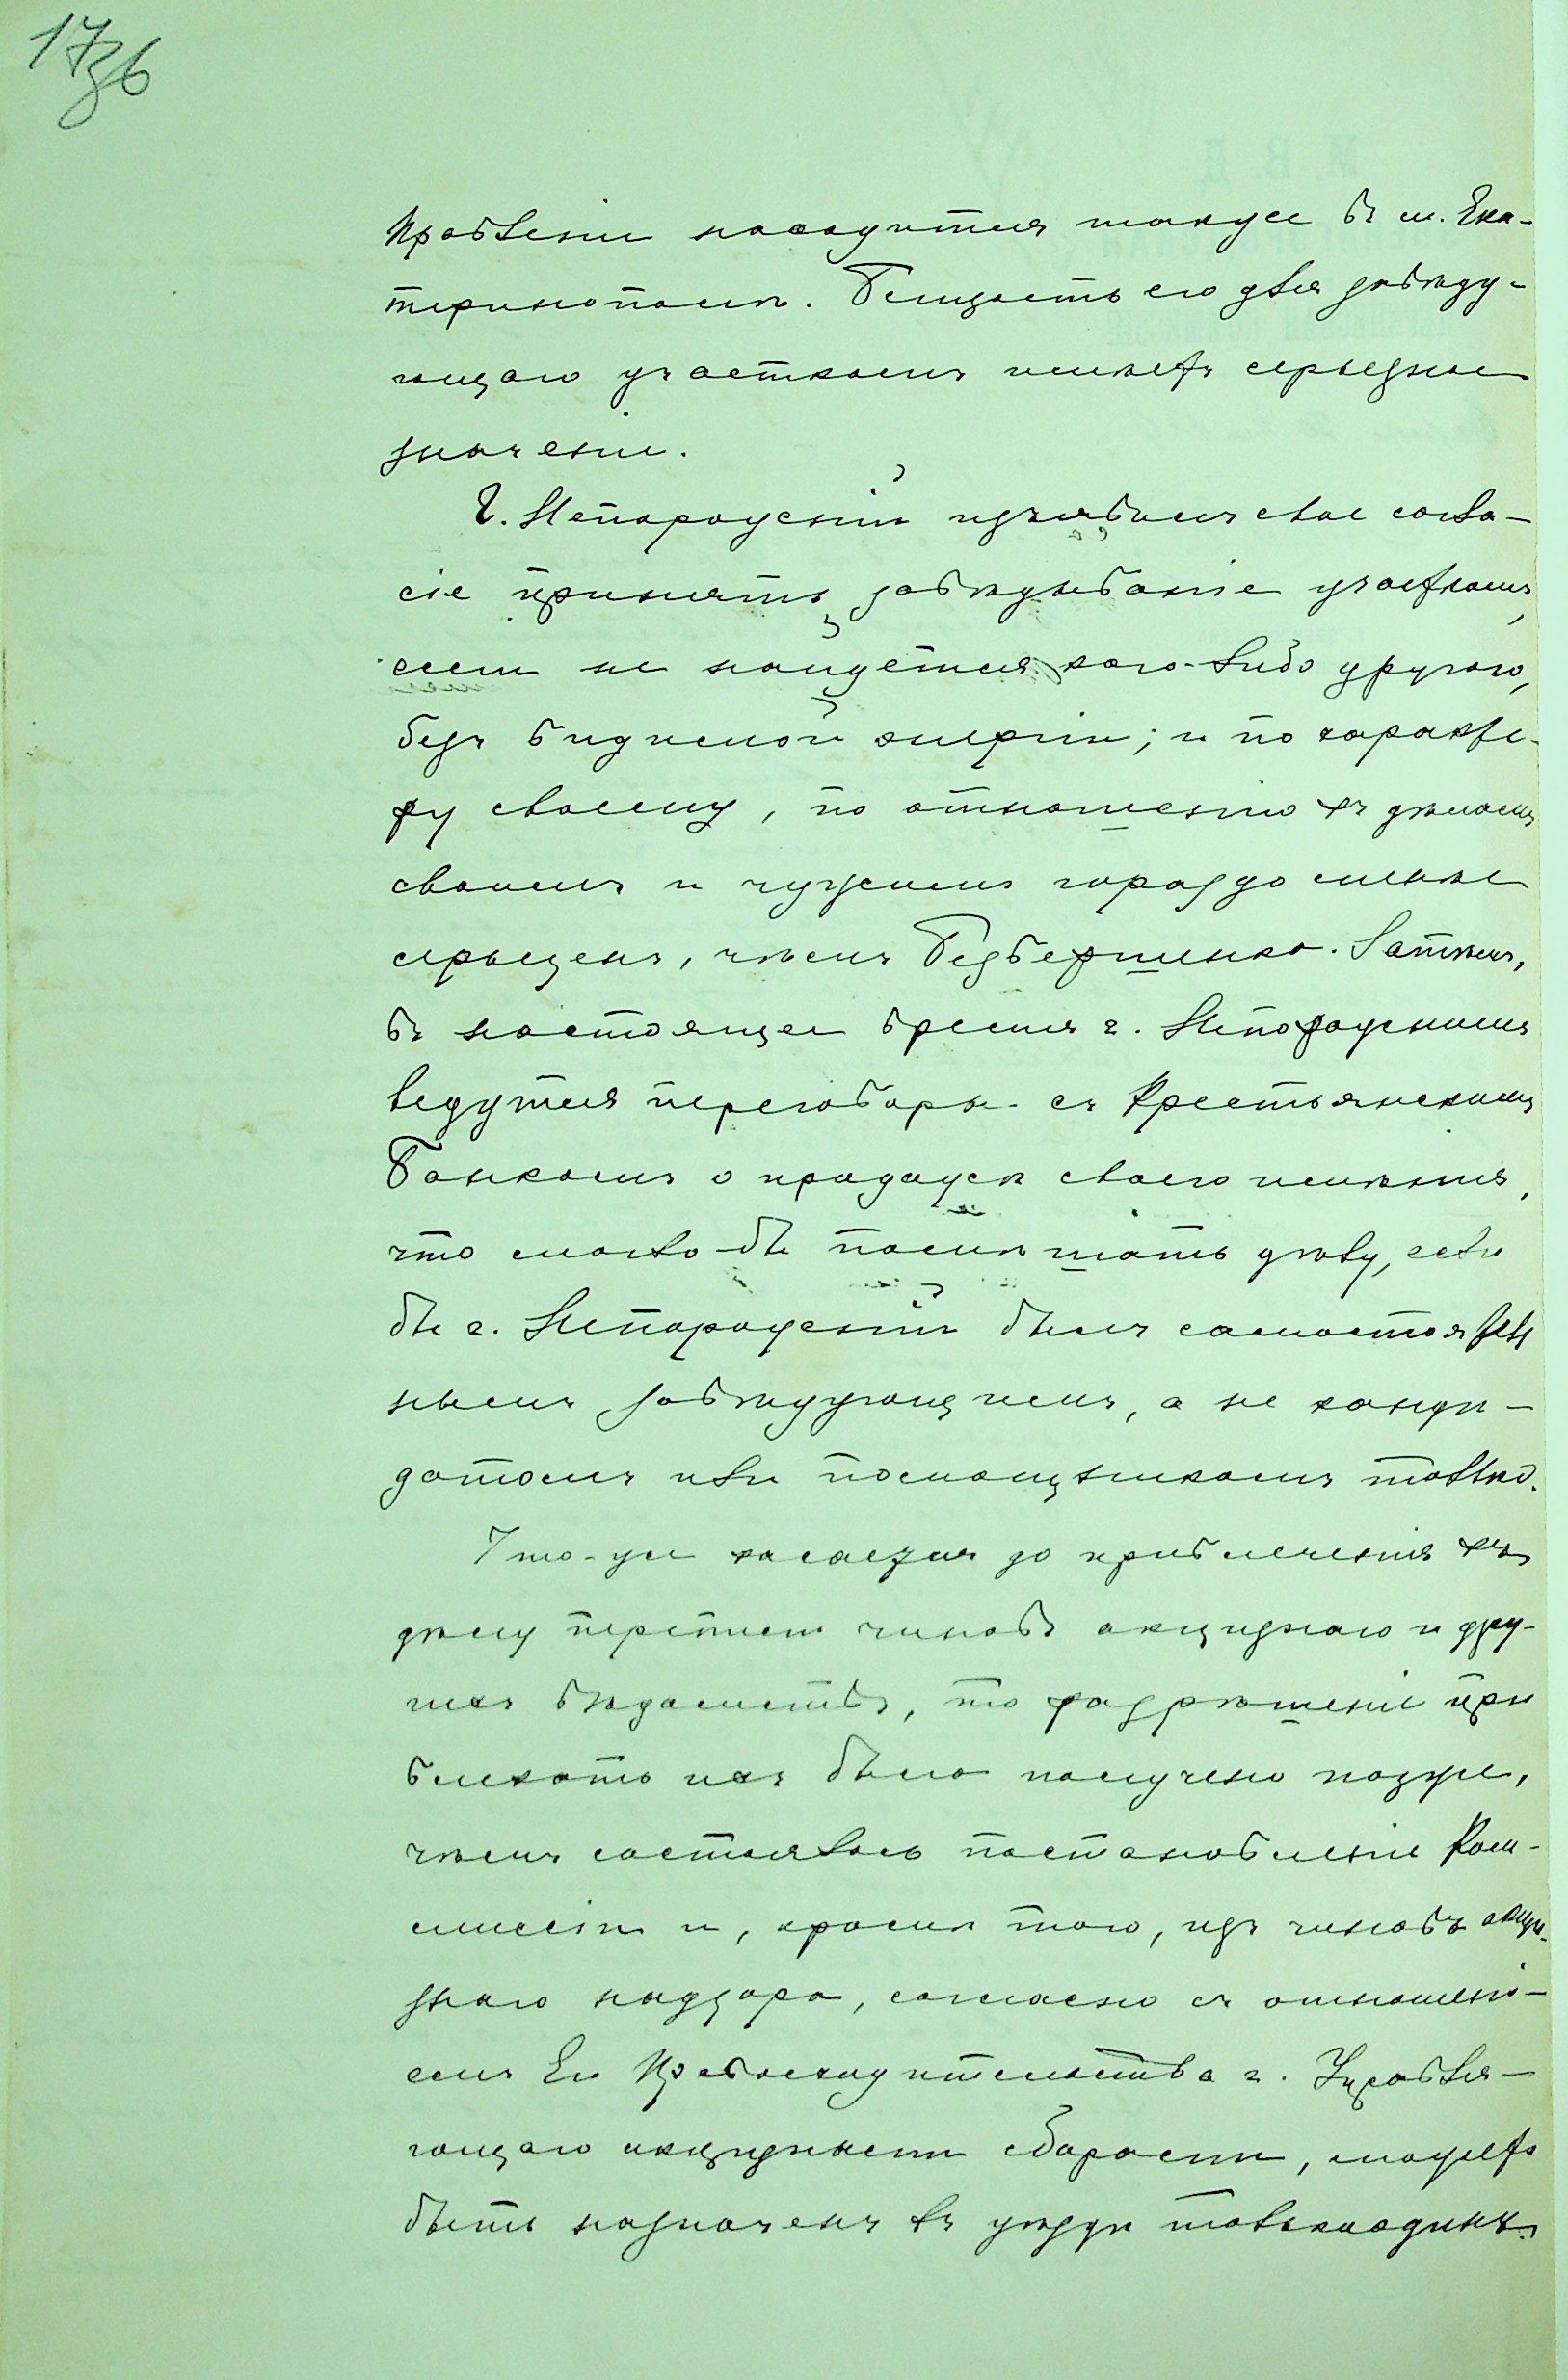 17зв
правленіи находится также въ м. Ека-
теринополѣ. Близость его для завѣду-
ющаго участкомъ имѣетъ серьезное
значеніе.
Г. Непорожскій изъявилъ свое согла-
сіе принять завѣдываніе участкомъ,
если не найдется кого-либо другого,
безъ видимой энергіи; и по характе-
ру своему, по отношенію къ дѣламъ
своимъ и чужимъ гораздо менѣе
серьезенъ, чѣмъ Безвершенко. Затѣмъ,
въ настоящее время г. Непорожскимъ
ведутся переговоры съ Крестьянскимъ
Банкомъ о продажѣ своего имѣнія,
что могло-бы помѣшать дѣлу, если
бы г. Непорожскій былъ самостоятель
нымъ завѣдующимъ, а не канди-
датомъ или помощникомъ только.
Что-же касается до привлеченія къ
дѣлу переписи чиновъ акцизнаго и дру-
гихъ вѣдомствъ, то разрѣшеніе при
влекать ихъ было получено позже,
чѣмъ состоялось постановленіе Ком-
миссіи и, кромѣ того, изъ чиновъ акци-
знаго надзора, согласно съ отношені-
емъ Его Превосходительства г. Управля-
ющаго акцизными сборами, можетъ
быть назначенъ въ уѣздѣ только одинъ.